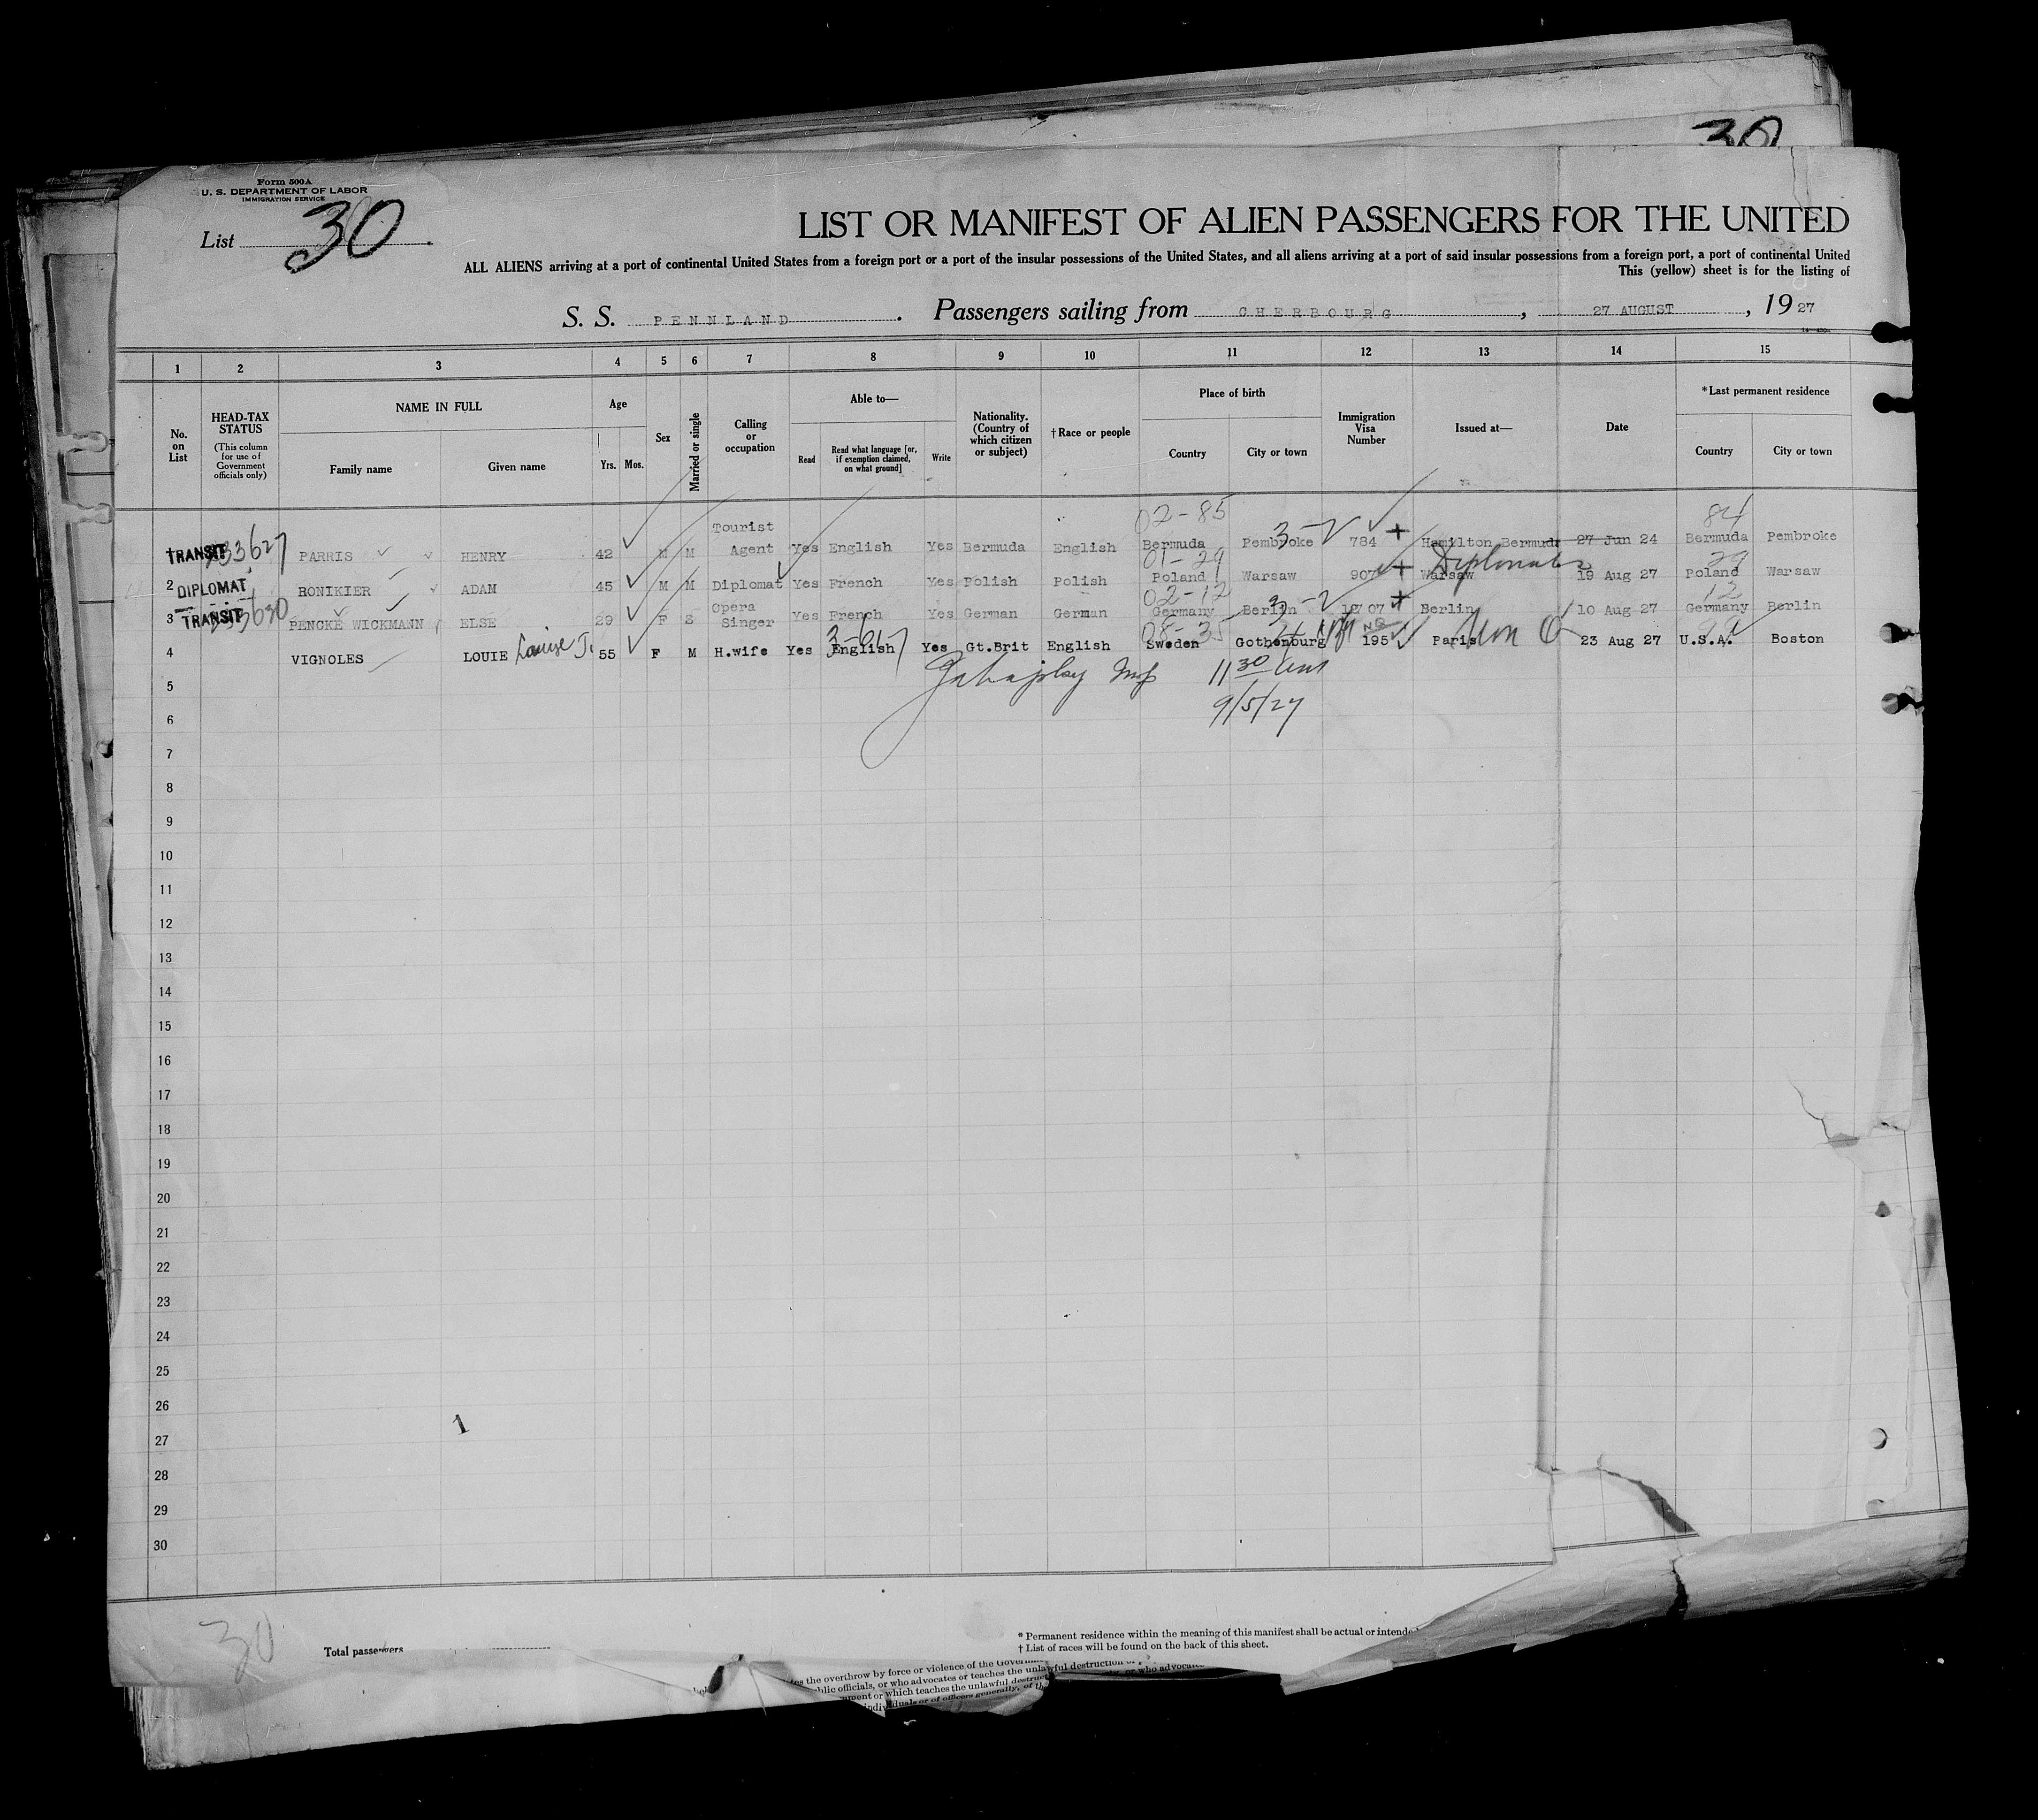 30
Form 500A
U. S. DEPARTMENT OF LABOR
IMMIGRATION SERVICE
List 30
LIST OR MANIFEST OF ALIEN PASSENGERS FOR THE UNITED
ALL ALIENS arriving at a port of continental United States from a foreign port or a port of the insular possessions of the United States, and all aliens arriving at a port of said insular possessions from a foreign port, a port of continental United
This (yellow) sheet is for the listing of
S. S. PENNLAND. Passengers sailing from CHERBOURG, 27 AUGUST, 19 27
1 2 3 4 5 6 7 8 9 10 11 12 13 14 15
No. on List
HEAD-TAX STATUS (This column for use of Government officials only)
NAME IN FULL
Family name Given name
Age
Yrs. Mos.
Sex
Married or single
Calling or occupation
Able to—
Read
Read what language [or, if exemption claimed, on what ground]
Write
Nationality. (Country of which citizen or subject)
†Race or people
Place of birth
Country City or town
Immigration Visa Number
Issued at—
Date
*Last permanent residence
Country City or town
02-85 84
TRANSIT 33627 PARRIS HENRY 42 M M Tourist Agent Yes English Yes Bermuda English Bermuda Pembroke 3- 784 + Hamilton Bermuda 27 Jun 24 Bermuda Pembroke
01-29 Diplomat 29
2 DIPLOMAT RONIKIER ADAM 45 M M Diplomat Yes French Yes Polish Polish Poland Warsaw 907 + Warsaw 19 Aug 27 Poland Warsaw
02-12 12
3 TRANSIT 33630 PENCKE WICKMANN ELSE 29 F S Opera Singer Yes French Yes German German Germany Berlin 3- 1707 + Berlin 10 Aug 27 Germany Berlin
08-35
4 VIGNOLES LOUIE Louise J. 55 F M H.wife Yes English Yes Gt.Brit English Sweden Gothenburg NQ 195 Paris Non Q 23 Aug 27 U.S.A. Boston
5 11 30
6 9/5/27
7
8
9
10
11
12
13
14
15
16
17
18
19
20
21
22
23
24
25
26
1
27
28
29
30
30
Total passengers
* Permanent residence within the meaning of this manifest shall be actual or intende
† List of races will be found on the back of this sheet.
the overthrow by force or violence of the
officials, or who advocates or teaches the unlawful destruction
or which teaches the unlawful
or of officers generally, of